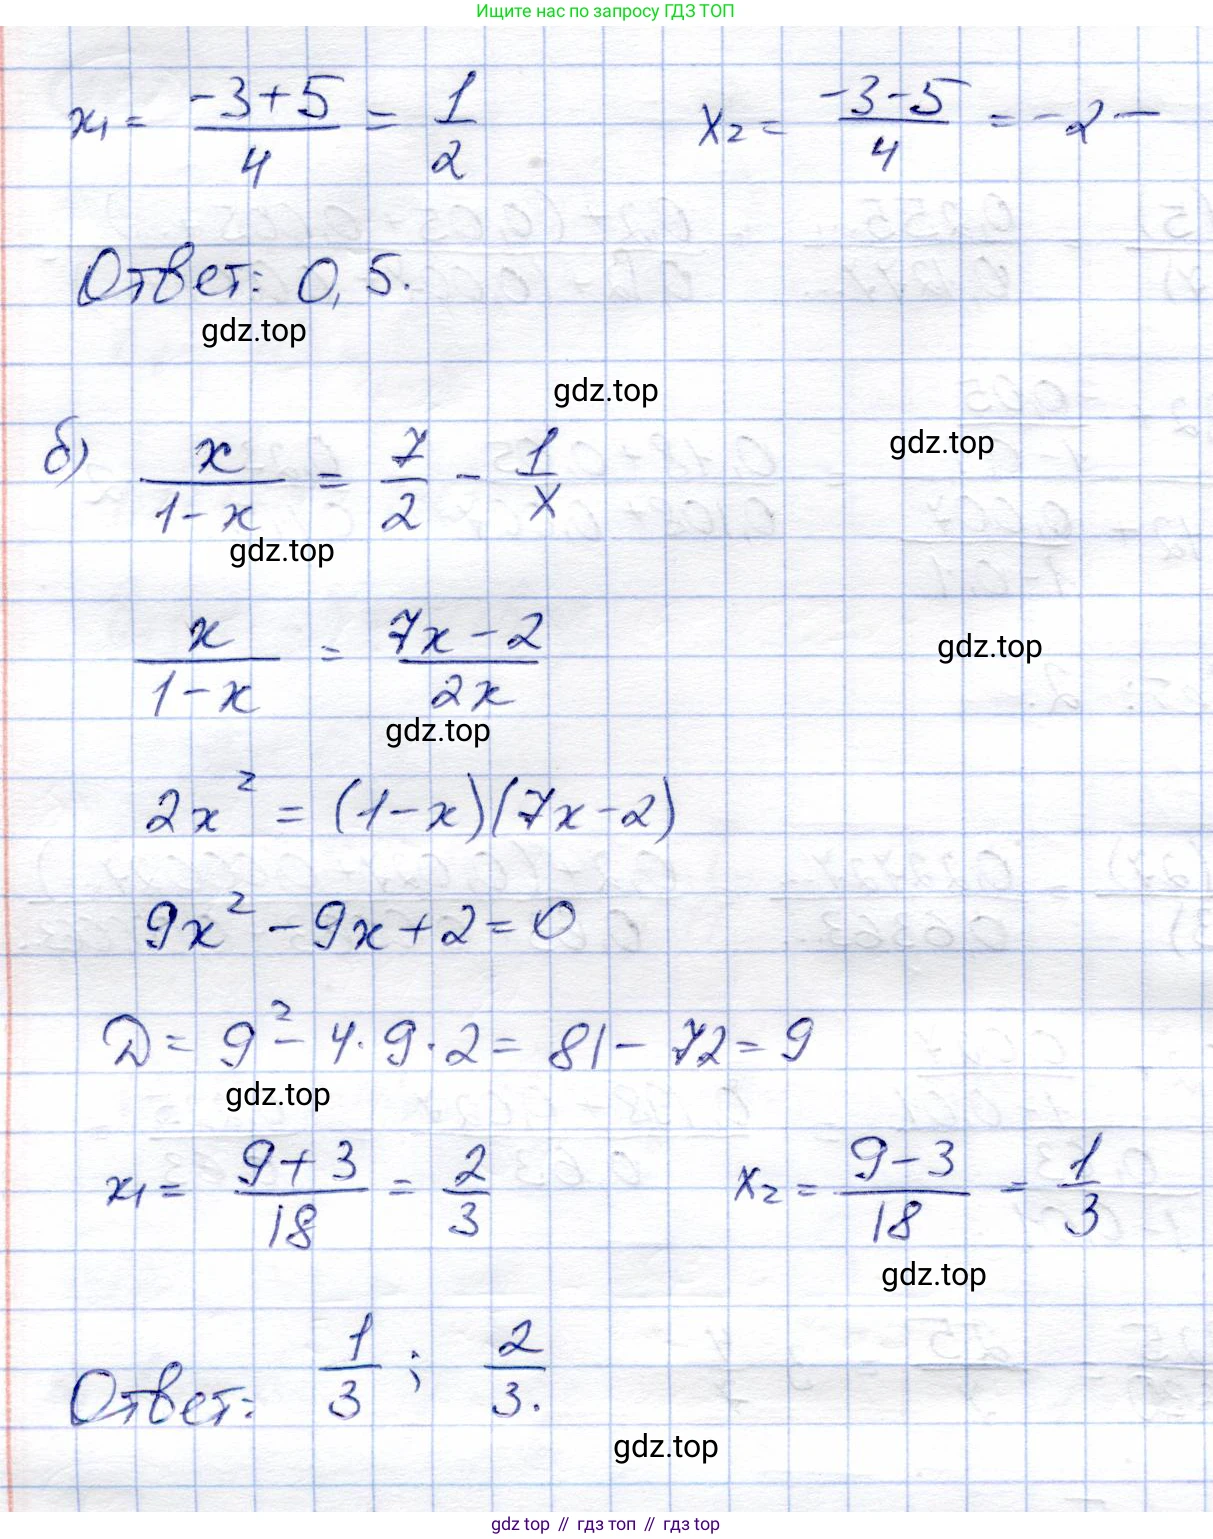 Ищите нас по запросу ГДЗ ТОП
x₁ = (-3+5)/4 = 1/2    x₂ = (-3-5)/4 = -2 -
Ответ: 0,5.
gdz.top
gdz.top
gdz.top
б) x/(1-x) = 7/2 - 1/x
gdz.top
x/(1-x) = (7x-2)/(2x)
gdz.top
gdz.top
2x² = (1-x)(7x-2)
9x² - 9x + 2 = 0
D = 9² - 4·9·2 = 81 - 72 = 9
gdz.top
x₁ = (9+3)/18 = 2/3    x₂ = (9-3)/18 = 1/3
gdz.top
Ответ: 1/3 ; 2/3.
gdz.top
gdz top // гдз топ // gdz top